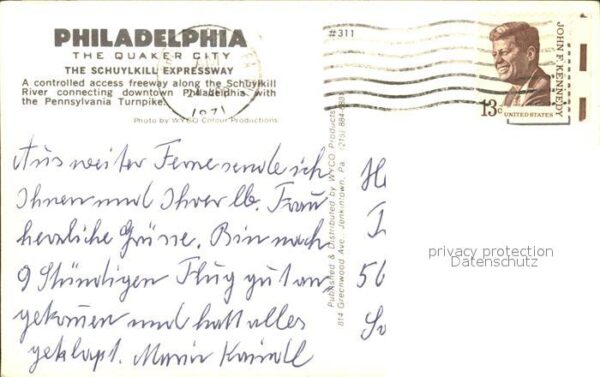 PHILADELPHIA
THE QUAKER CITY
THE SCHUYLKILL EXPRESSWAY
A controlled access freeway along the Schuylkill
River connecting downtown Philadelphia with
the Pennsylvania Turnpike.
Photo by WYCO Colour Productions
1971
#311
JOHN F. KENNEDY
13c
UNITED STATES
Published & Distributed by WYCO Products
814 Greenwood Ave., Jenkintown, Pa. (215) 884-
Aus weiter Ferne sende ich
Ihnen und Ihrer lb. Frau
herzliche Grüsse. Bin nach
9 Stündigen Flug gut an
gekommen und hatt alles
geklapt. Maria
56
privacy protection
Datenschutz